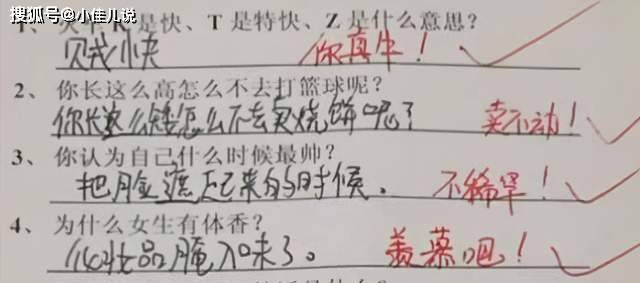 搜狐号@小佳儿说
1、火车K是快、T是特快、Z是什么意思？
贼快 你真牛！
2、你长这么高怎么不去打篮球呢？
你长这么矮怎么不去卖烧饼呢？ 卖不动！
3、你认为自己什么时候最帅？
把脸遮起来的时候。 不稀罕！
4、为什么女生有体香？
化妆品腌入味了。 羡慕吧！